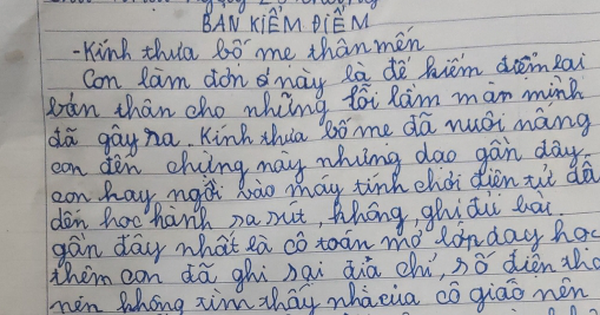 BẢN KIỂM ĐIỂM
- Kính thưa bố mẹ thân mến
Con làm đơn này là để kiểm điểm lại
bản thân cho những lỗi lầm mà mình
đã gây ra. Kính thưa bố mẹ đã nuôi nấng
con đến chừng này nhưng dạo gần đây
con hay ngồi vào máy tính chơi điện tử dẫ
dến học hành sa sút, không ghi đủ bài.
gần đây nhất là cô toán mở lớp dạy học
thêm con đã ghi sai địa chỉ, số điện tho
nên không tìm thấy nhà của cô giáo nên